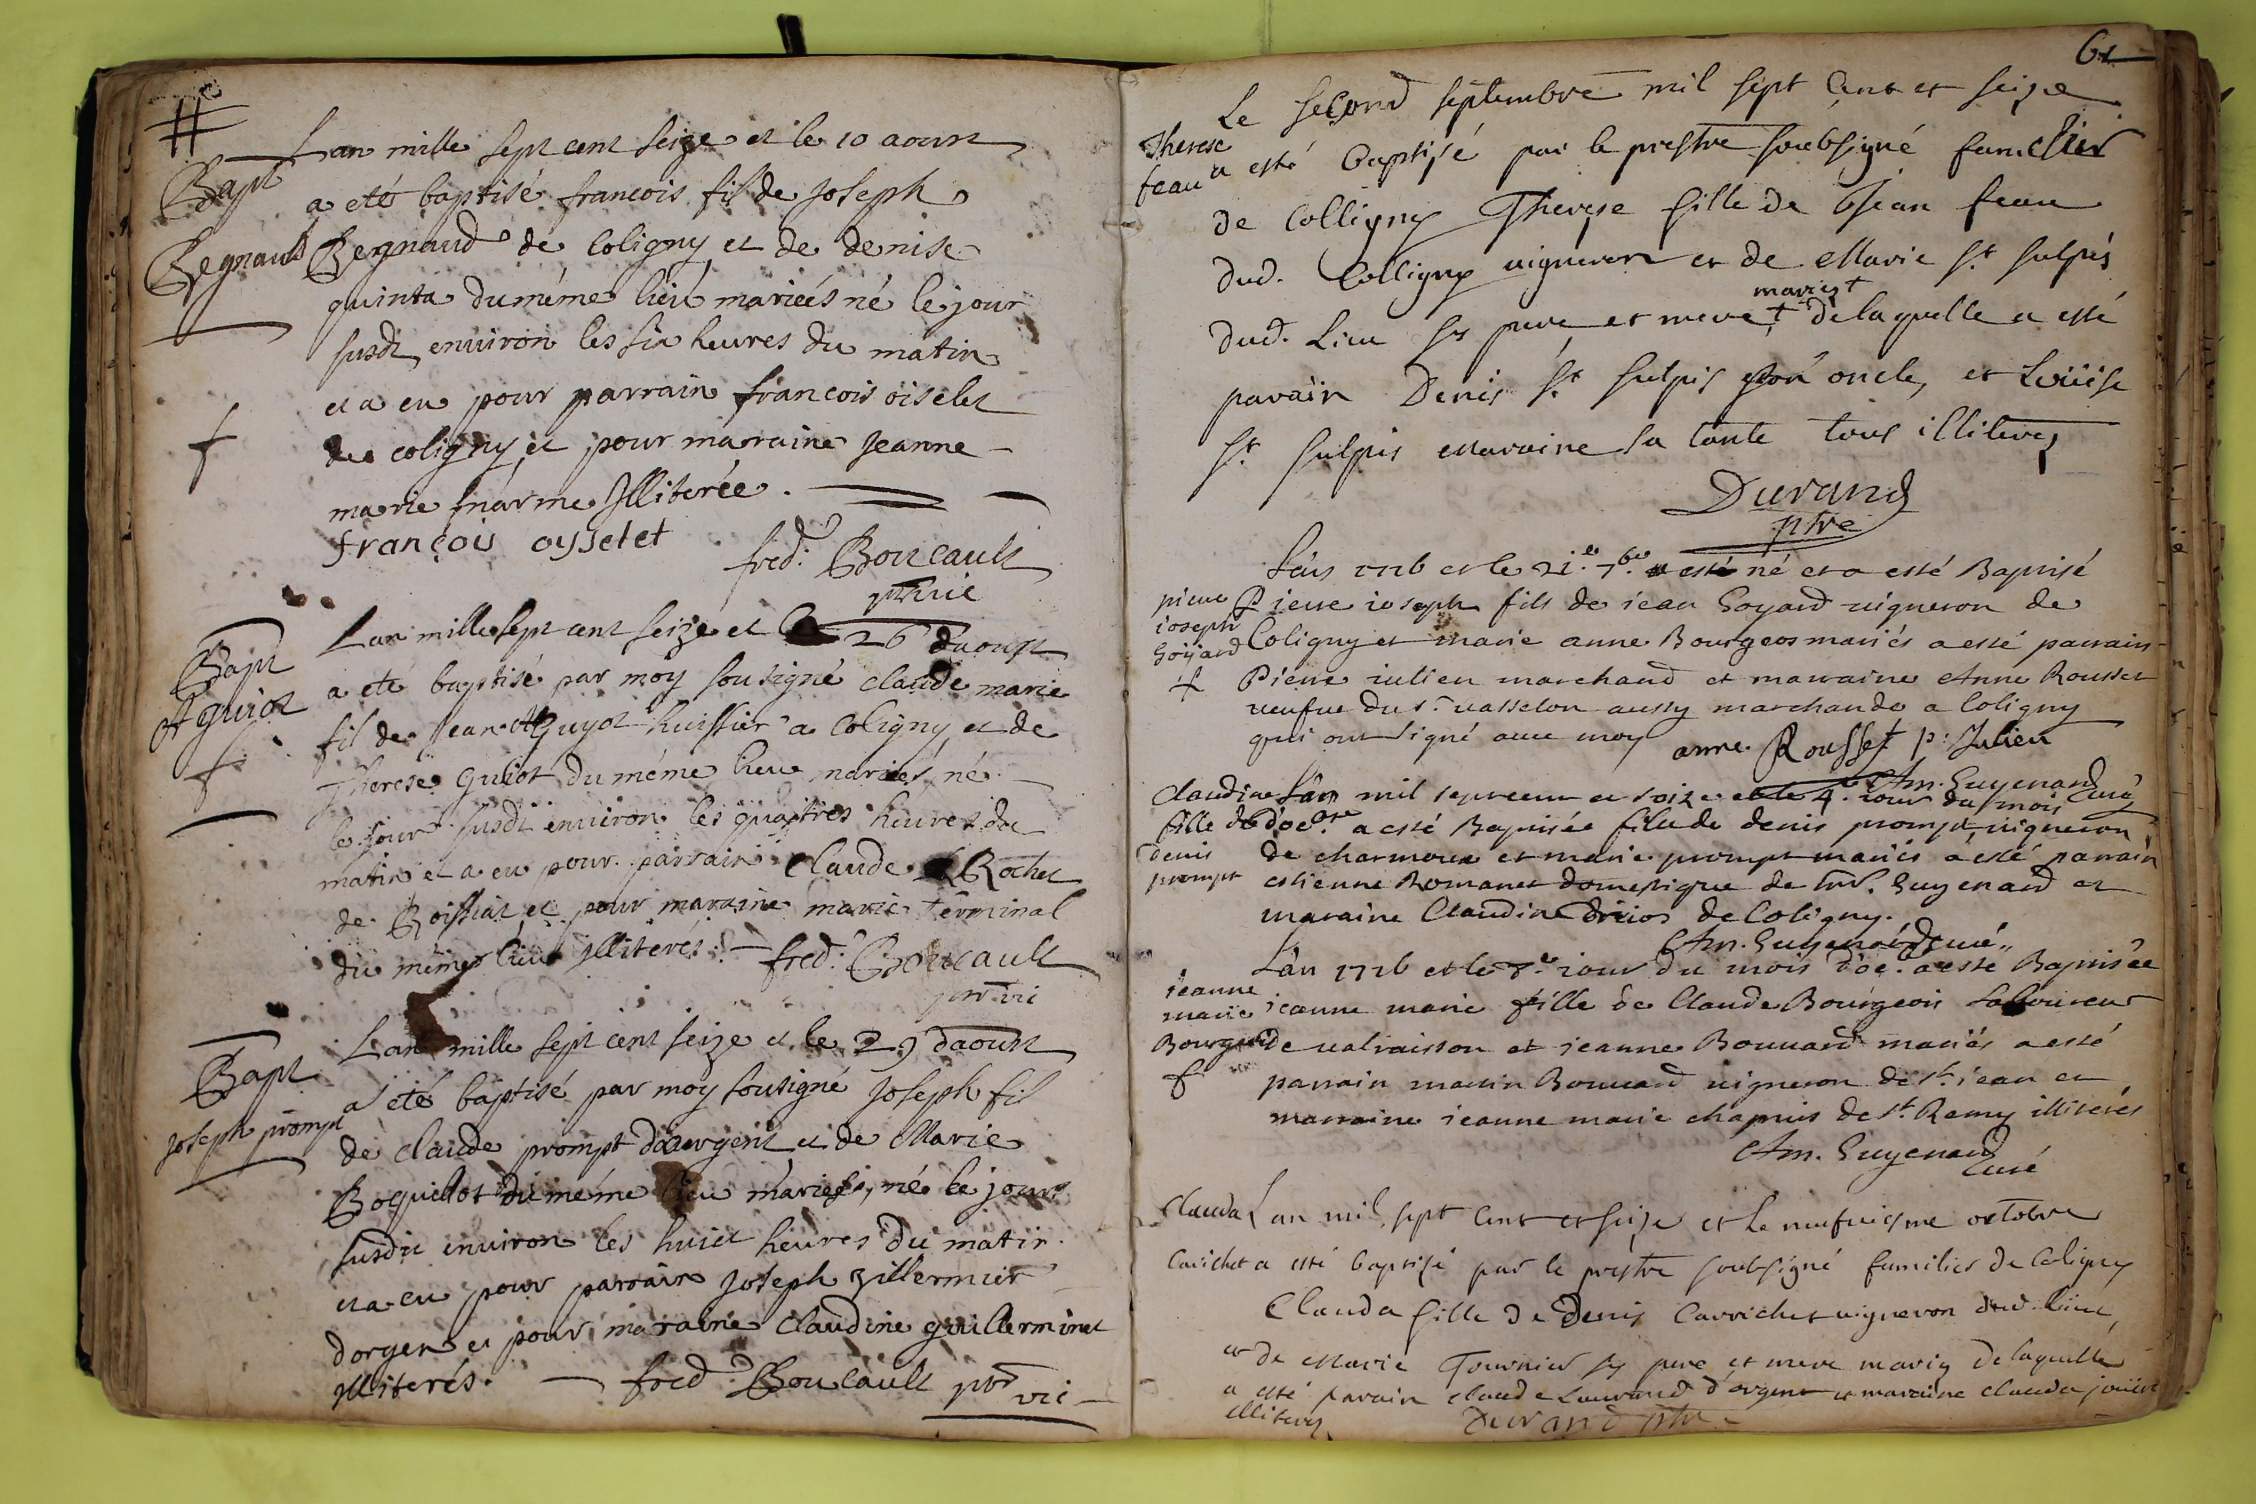 #
Bapt
Regnaud
Lan mille sept cent seize et le 10 aoust
a eté baptisé francois fil de Joseph
Regnaud de Coligny et de denise
quinta du méme lieu mariés né le jour
susdt environ les six heures du matin
et a eu pour parrain francois oiselet
de coligny et pour maraine Jeanne
marie Jlliterée.
françois oysselet
fred: Boucault
ptre vic
Bapt
Lan mille sept cent seize et le 26 daoust
a eté baptisé par moy sousigné claude marie
fil de Jean Guyot huissier a Coligny et de
Therese Guliot du méme lieu mariés, né
le jour susdt environ les quattres heures du
matin et a eu pour parrain Claude Rochet
de Boissiat et pour maraine marie terminal
du méme lieu jlliterés: fred: Boucault
ptre vic
Bapt
Joseph prompt
Lan mille sept cent seize et le 29 daoust
a eté baptisé par moy sousigné Joseph fil
de Claude prompt daorgent et de Marie
Boquillot du méme lieu mariés, né le jour
susdit environ les huict heures du matin
et a eu pour parrain Joseph
dorgent et pour maraine Claudine guillerminet
Jlliterés. fred: Boucault ptre vic
61
Therese
feau
Le second septembre mil sept Cent et seize
a esté baptisé par le prestre soubsigné familier
de Colligny Therese fille de Jean feau
dud. Colligny vigneron et de Marie St sulpis
mariez +
dud. Lieu ses pere et mere + de laquelle a esté
parain Denis St sulpis son oncle, et Loüise
St sulpis Maraine sa tante tous illiterez
Durand
ptre
pierre
joseph
Goyard
Lan 1716 et le 21.e 7bre esté né et a esté Baptisé
Pierre joseph fils de jean Goyard vigneron de
Coligny et marie anne Bourgeos mariés a esté parrain
Pierre julien marchand et marraine Anne Rousset
veufue du sr vasselon aussy marchande a Coligny
qui ont signé avec moy anne Rousset p: Julien
Am. Guyenard curé
Claudine
fille de
denis
prompt
Lan mil septcent et seize et le 4.e jour du mois
d'oc.bre a esté Baptisée fille de denis prompt, vigneron
de charmoux et marie prompt mariés a esté parrain
estienne Romanet domestique de Mr. Guyenard et
maraine Claudine de Coligny.
Am. Guyenard curé
jeanne
marie
Bourgeois
Lan 1716 et le 7.e jour du mois d'oc. a esté Baptisée
jeanne marie fille de Claude Bourgeois Laboureur
de valraisson et jeanne Bouuard mariés a esté
parrain martin Bouuard vigneron de St. jean et
marraine jeanne marie chapuis de St. Remy illiterés
Am. Guyenard
Curé
Clauda
Carichet
Lan mil sept Cent et seize et Le neufuiesme octobre
a esté baptisé par le prestre soubsigné familier de Coligny
Clauda fille de Denis Carrichet vigneron dud. lieu,
et de Marie Tournier ses pere et mere mariez de laquelle
a esté parain claude Laurand d'orgent et maraine clauda
illiterez Durand ptre